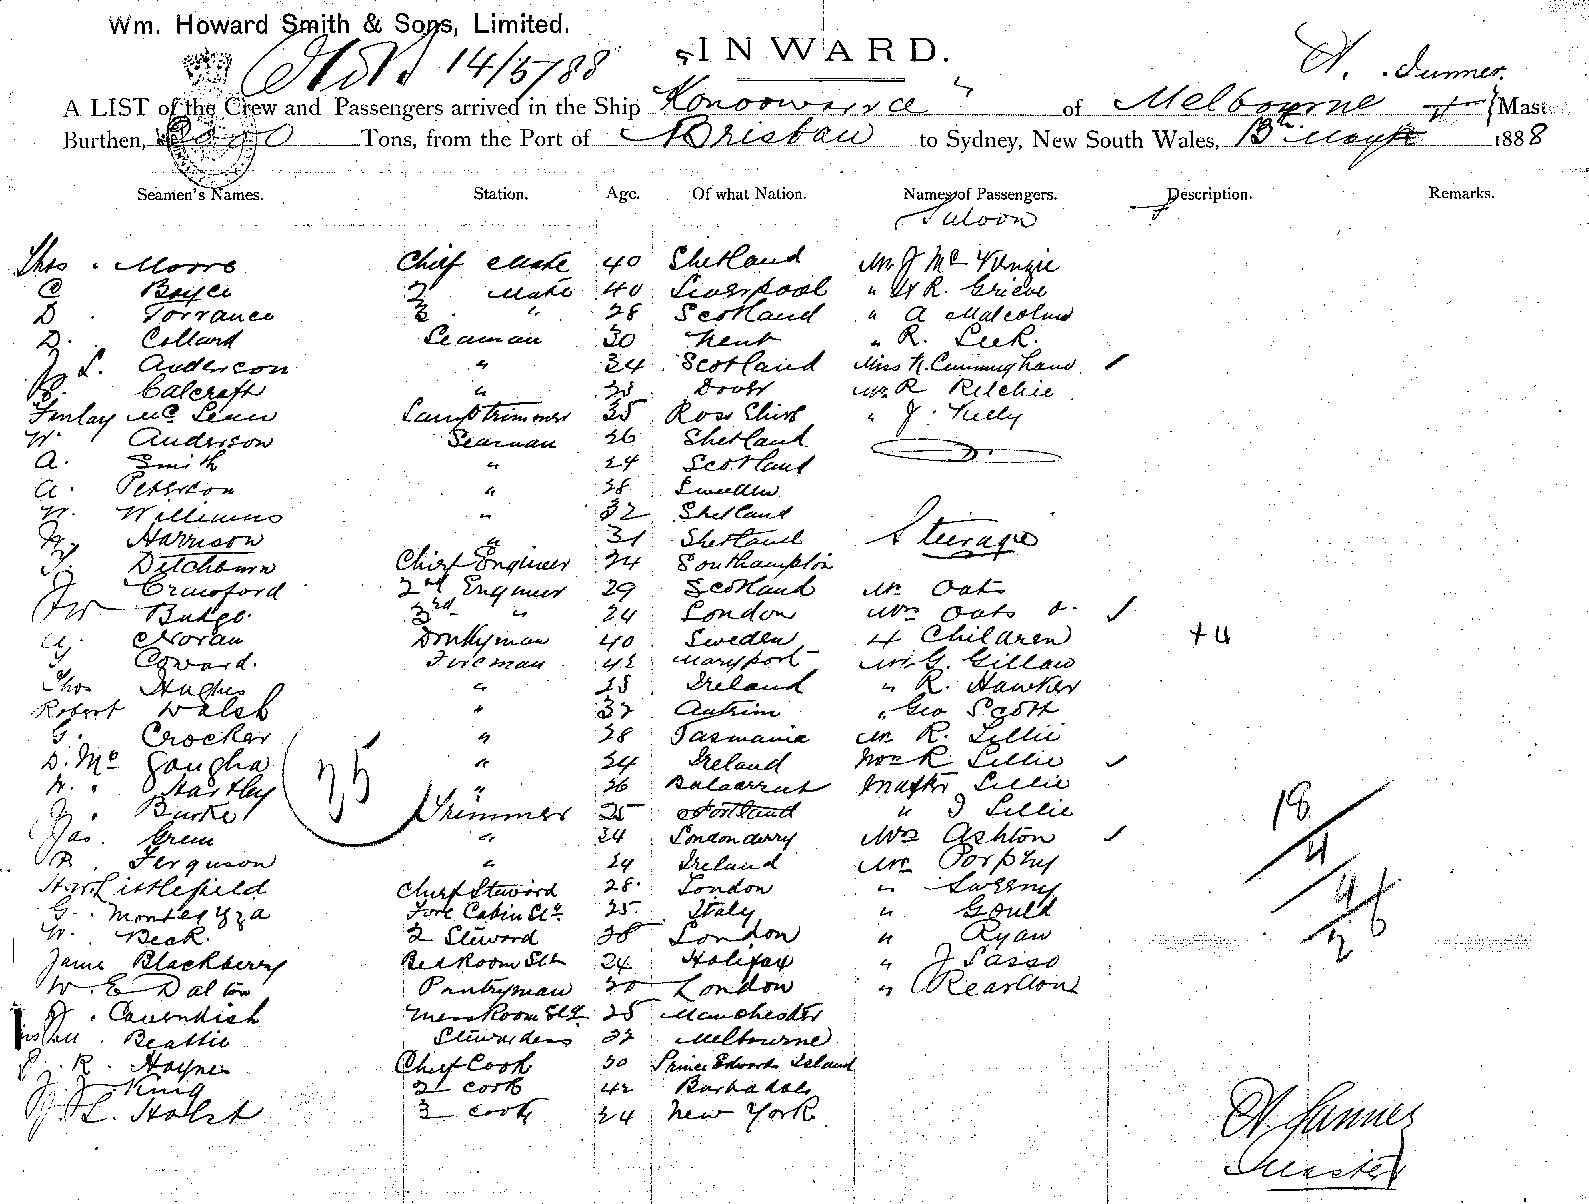 Wm. Howard Smith & Sons, Limited.
14/5/88
INWARD.
A LIST of the Crew and Passengers arrived in the Ship "Konoowarra" of Melbourne Mast
Burthen, Tons, from the Port of Brisban to Sydney, New South Wales, 1888
Seamen's Names. Station. Age. Of what Nation. Names of Passengers. Description. Remarks.
Saloon
Thos. Moore Chief Mate 40 Shetland Mr J McKenzie
C Boyce 2 Mate 40 Liverpool " R. Grieve
D. Torrance 3 " 28 Scotland " A Malcolm
D. Collard Seaman 30 Kent " R. Leek.
J L. Anderson " 24 Scotland Miss N. Cunningham
Calcraft " Dover Mr R Ritchie
Finlay McLean Lamptrimmer 35 Ross Shire " J. Kelly
W. Anderson Seaman 26 Shetland
A. Smith " 24 Scotland
A. Peterson " 28 Sweden
W. Williams " 32 Shetland
Harrison " 31 Shetland Steerage
Ditchburn Chief Engineer 34 Southampton
J Crawford 2nd Engineer 29 Scotland Mr Oats
JW Budge 3rd " 24 London Mrs Oats &
A. Noran Donkyman 40 Sweden 4 Children +4
Coward. Fireman 42 Maryport Mr G. Gillaw
Thos Hughes " 28 Ireland " R. Hawker
Robert Walsh " 32 Antrim " Geo Scott
G. Crocker " 28 Tasmania Mr R. Lillie
D. Mc Gougha " 24 Ireland Mrs R Lillie
W. Hartley " 26 Balaarrat Master Lillie
J. Burke Trimmer 25 Portland " J Lillie
35
18
Jas. Green " 24 Londonderry Mrs Ashton
4
R. Ferguson " 24 Ireland Mr Porphry
Har Littlefield Chief Steward 28 London " Sweeny
G. Fore Cabin Std 25 Italy " Gould
W. Beck. 2 Steward 28 London " Ryan
James Blackberry Bed Room Std 24 Halifax " J Sasso
W. E Dalton Pantryman 20 London " Reardon
J. Cavendish Mess Room Std 25 Manchester
Beattie Stewardess 32 Melbourne
R. Haynes Chief Cook 30 Prince Edwards Island
J. J King 2 cook 42 Barbadoes
J. L. Holst 3 cook 24 New York
Master